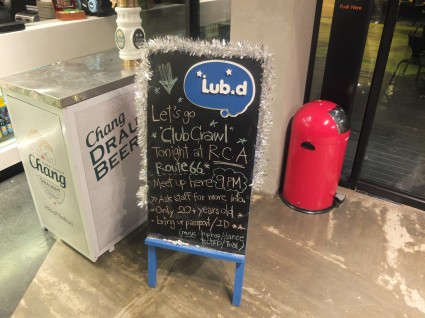 Push Here
Lub.d
Let's go
"ClubCrawl"
Tonight at RCA
Route66.
Meet up here 9PM
» Ask staff for more info.
- Only 20+ years old
- bring ur passport/ID
(music: hiphop/dance
Chang
DRAU
BEER
Chang